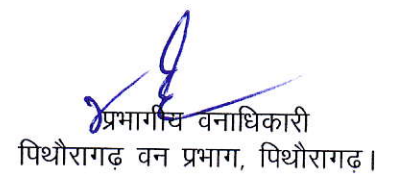 प्रभागीय वनाधिकारी
पिथौरागढ़ वन प्रभाग, पिथौरागढ़।